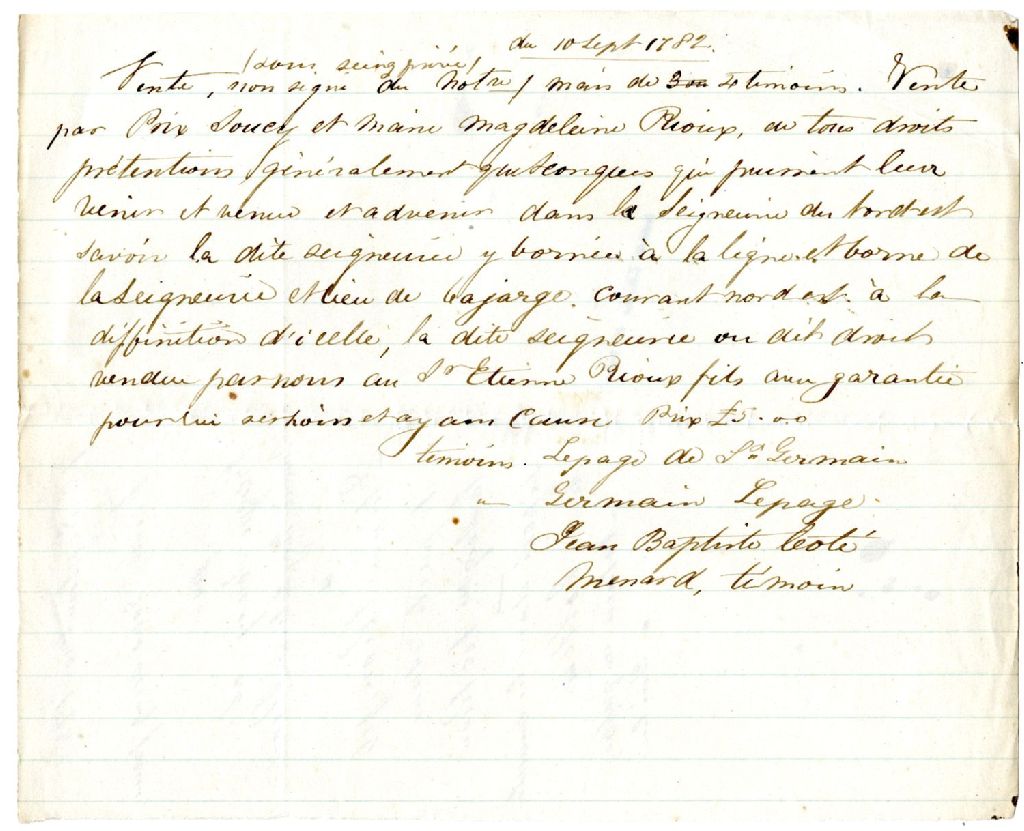 du 10 Sept 1782.
(sous seing privé)
Vente, non signé du Notre / mais de 3 ou 4 témoins. Vente
par Prix Soucy et Marie Magdeleine Rioux, de tous droits
prétentions généralement quelconques qui puissent leur
venir et venus et advenir dans la Seigneurie du Nord est
savoir la dite seigneurie y bornée à la ligne et borne de
la Seigneurie et lieu de Lajarge. courant nord est à la
diffinition d'icelle, la dite seigneurie ou dit droit
vendue par nous au Sr Etienne Rioux fils avec garantie
pour lui ses hoirs et ayans cause Prix £5.0.0
témoins. Lepage de St Germain
" Germain Lepage.
Jean Baptiste Coté
Menard, témoin